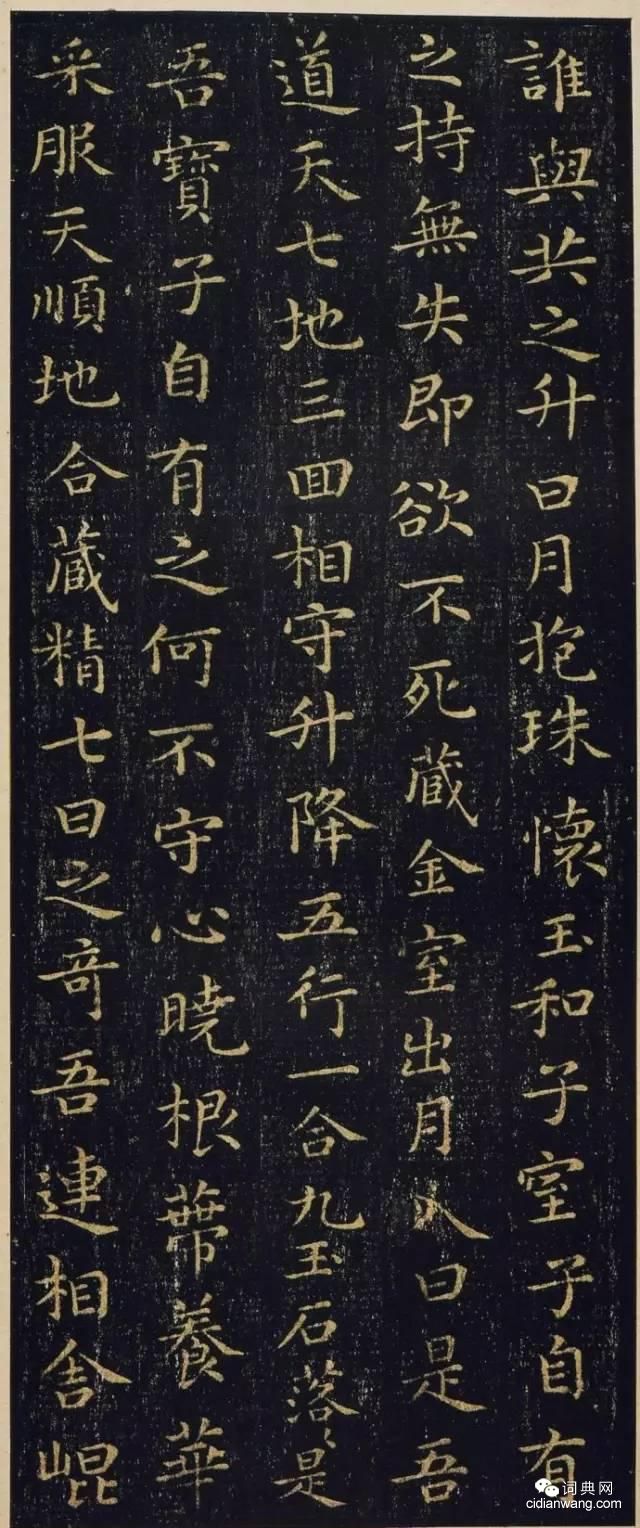 誰與共之升日月抱珠懷玉和子室子自有
之持無失即欲不死藏金室出月入日是吾
道天七地三回相守升降五行一合九玉石落〻是
吾寶子自有之何不守心曉根蔕養華
采服天順地合藏精七日之奇吾連相舍崐
词典网
cidianwang.com